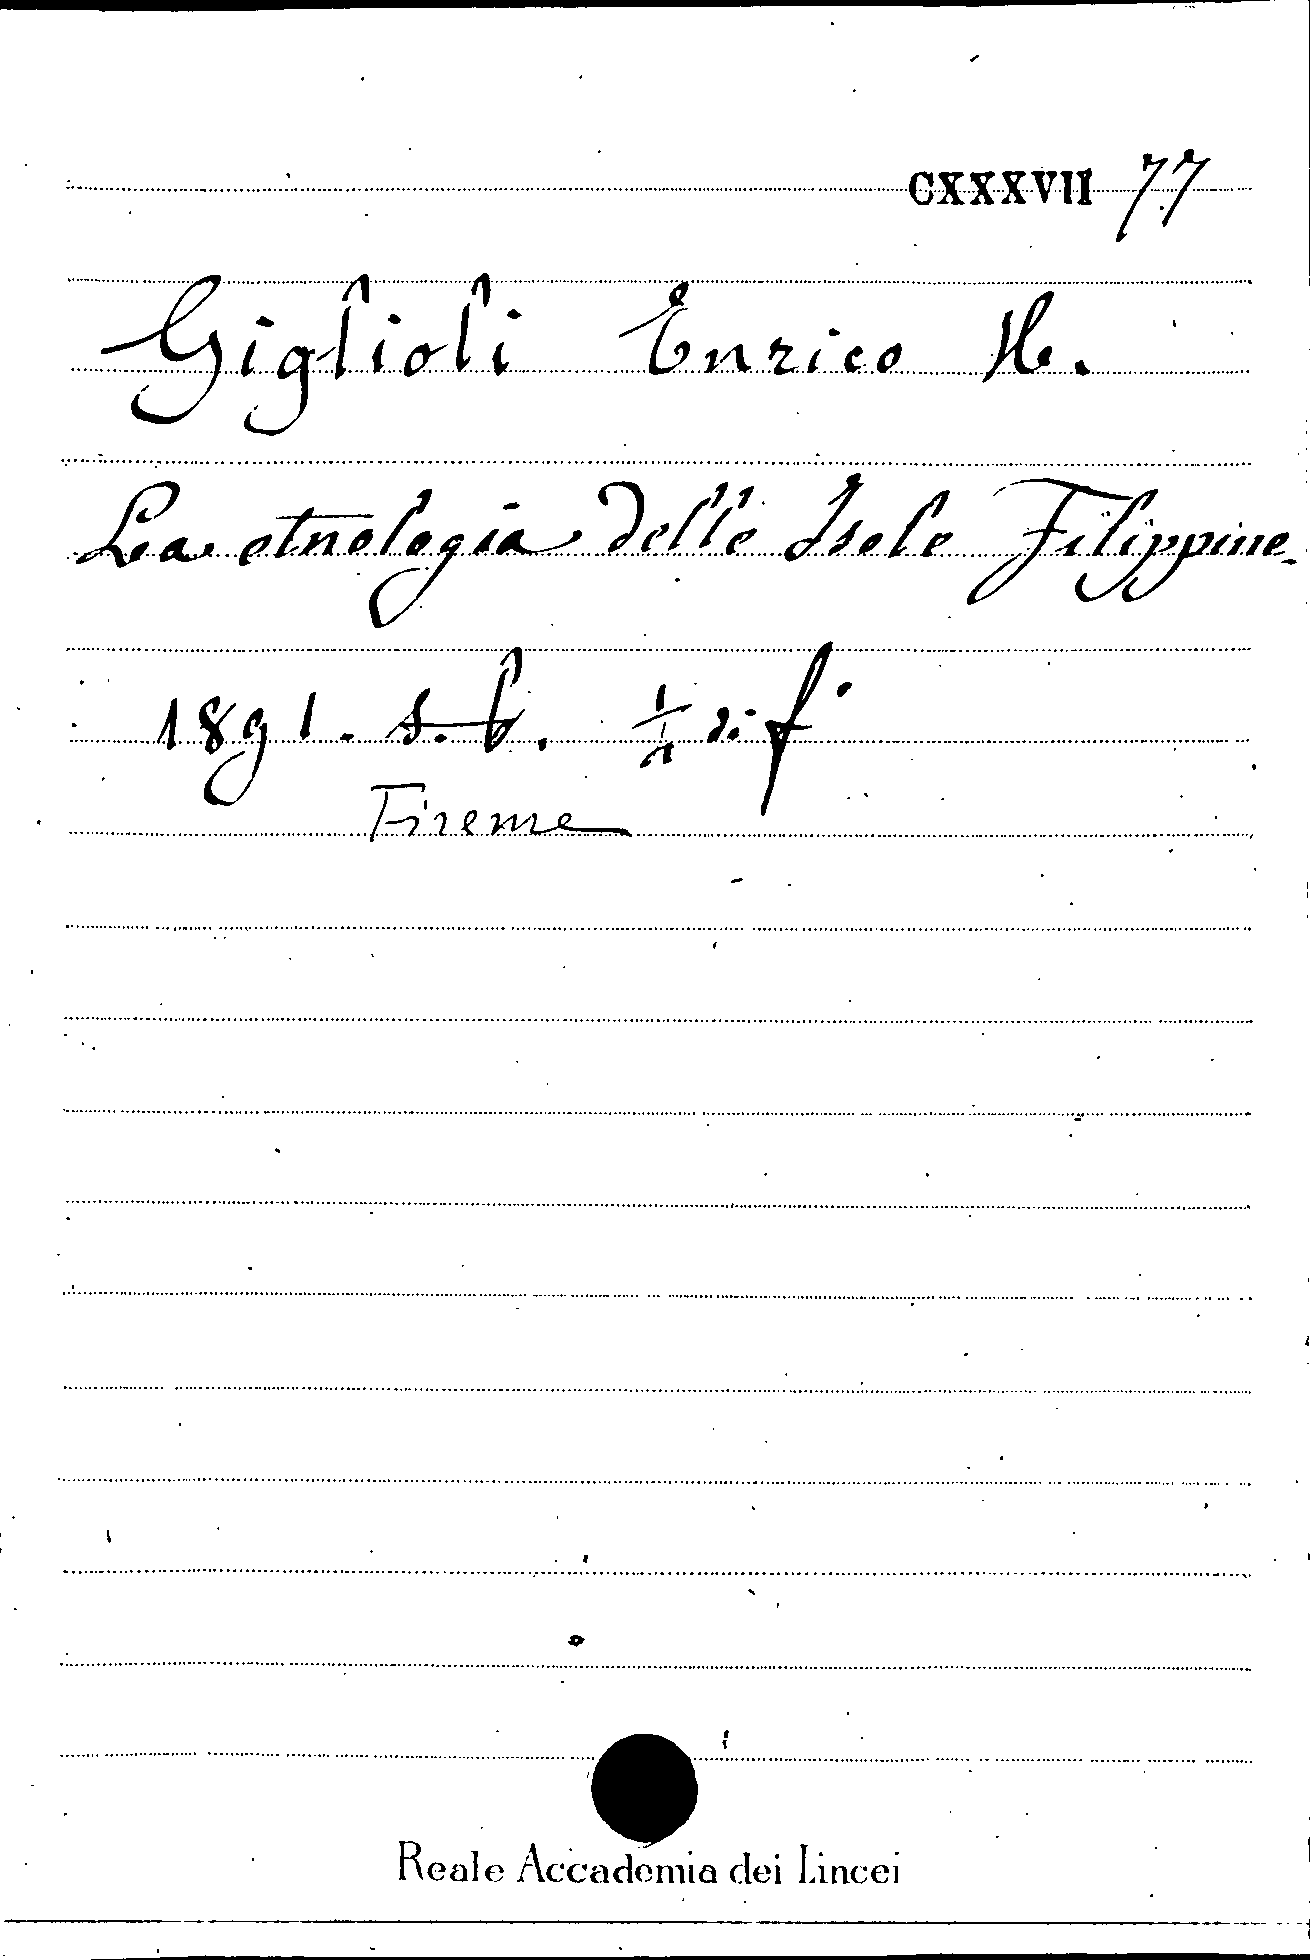 CXXXVII 77
Giglioli Enrico H.
La etnologia delle Isole Filippine
1891. s. l. ½ di f.°
Firenze
Reale Accademia dei Lincei